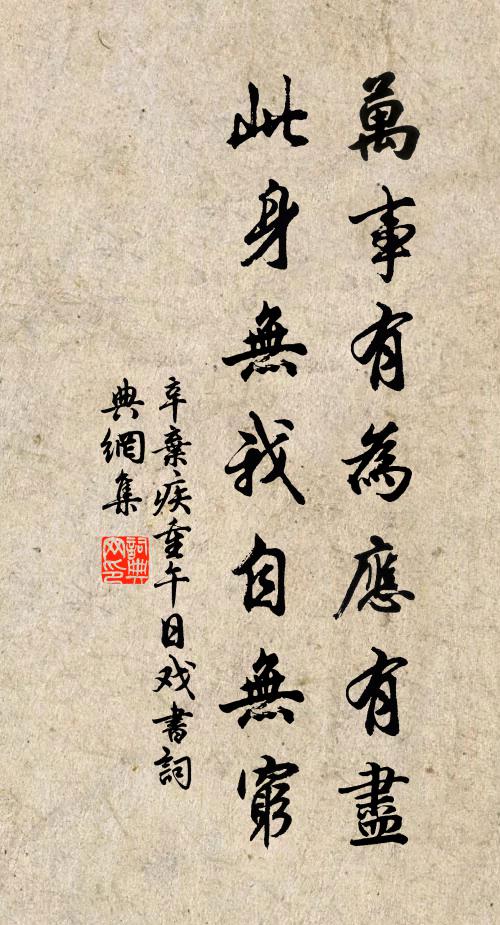 萬事有為應有盡
此身無我自無窮
辛棄疾重午日戏書詞
典網集
詞典
网印